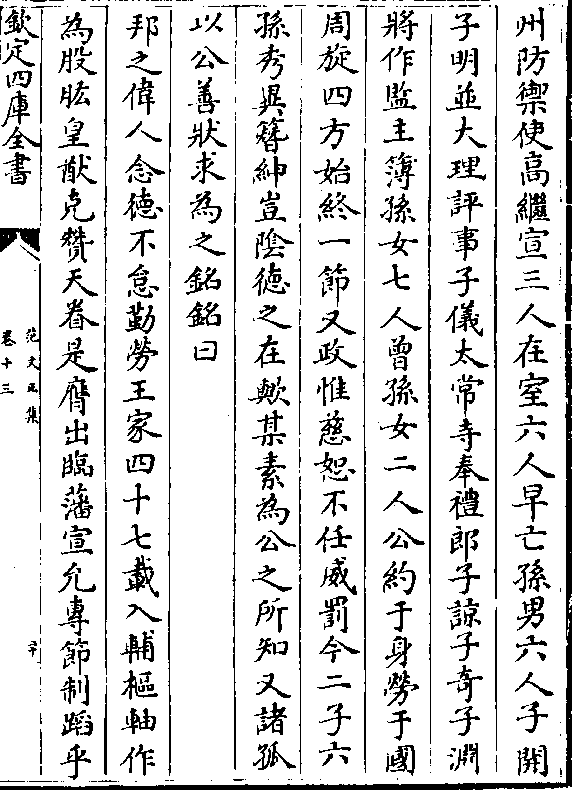 州防禦使高繼宣三人在室六人早亡孫男六人子開
子明並大理評事子儀太常寺奉禮郎子諒子奇子淵
將作監主簿孫女七人曾孫女二人公約于身勞于國
周旋四方始終一節又政惟慈恕不任威罰今二子六
孫秀異簪紳豈陰德之在歟某素為公之所知又諸孤
以公善狀求為之銘銘曰
邦之偉人念德不怠勤勞王家四十七載入輔樞軸作
為股肱皇猷克贊天眷是膺出臨藩宣允專節制蹈乎
欽定四庫全書
范文正集
卷十三